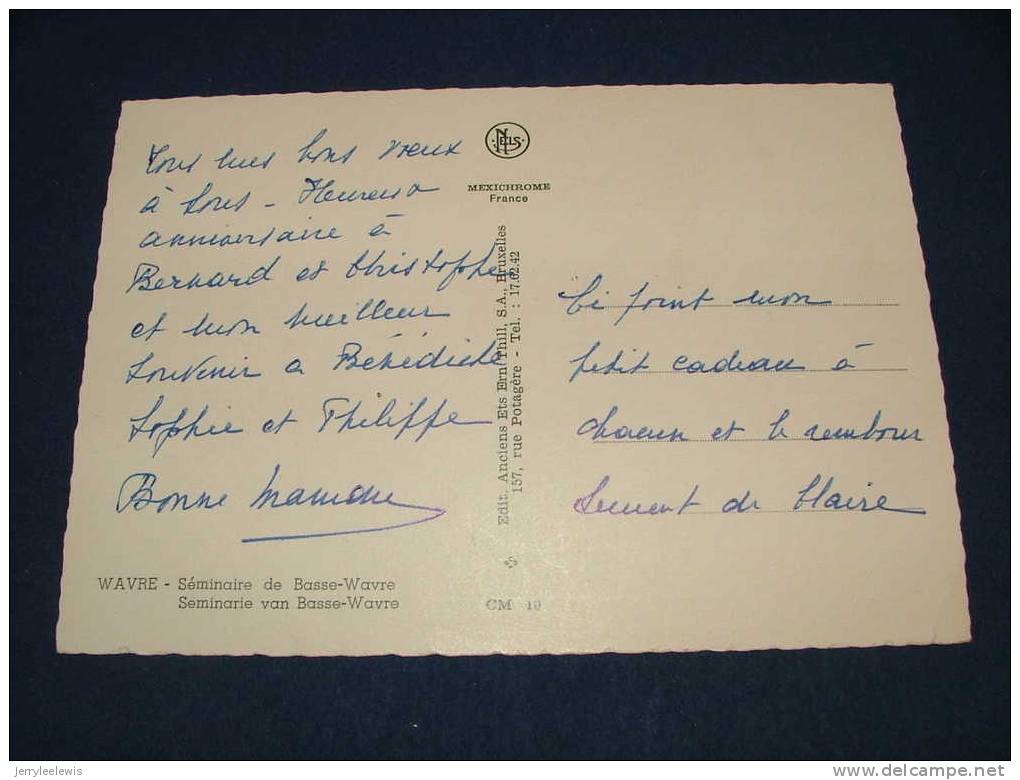 Tous mes bons vœux
à tous - Heureux
anniversaire à
Bernard et Christophe
et mon meilleur
souvenir a Bénédicte
Sophie et Philippe
Bonne Mamone
NELS
MEXICHROME
France
Edit. Anciens Ets Ern. Thill, S.A., Bruxelles
157, rue Potagère - Tel. : 17.62.42
Ci joint mon
petit cadeau à
chacun et le rembour
sement de Claire
WAVRE - Séminaire de Basse-Wavre
Seminarie van Basse-Wavre
CM 10
jerryleelewis
www.delcampe.net